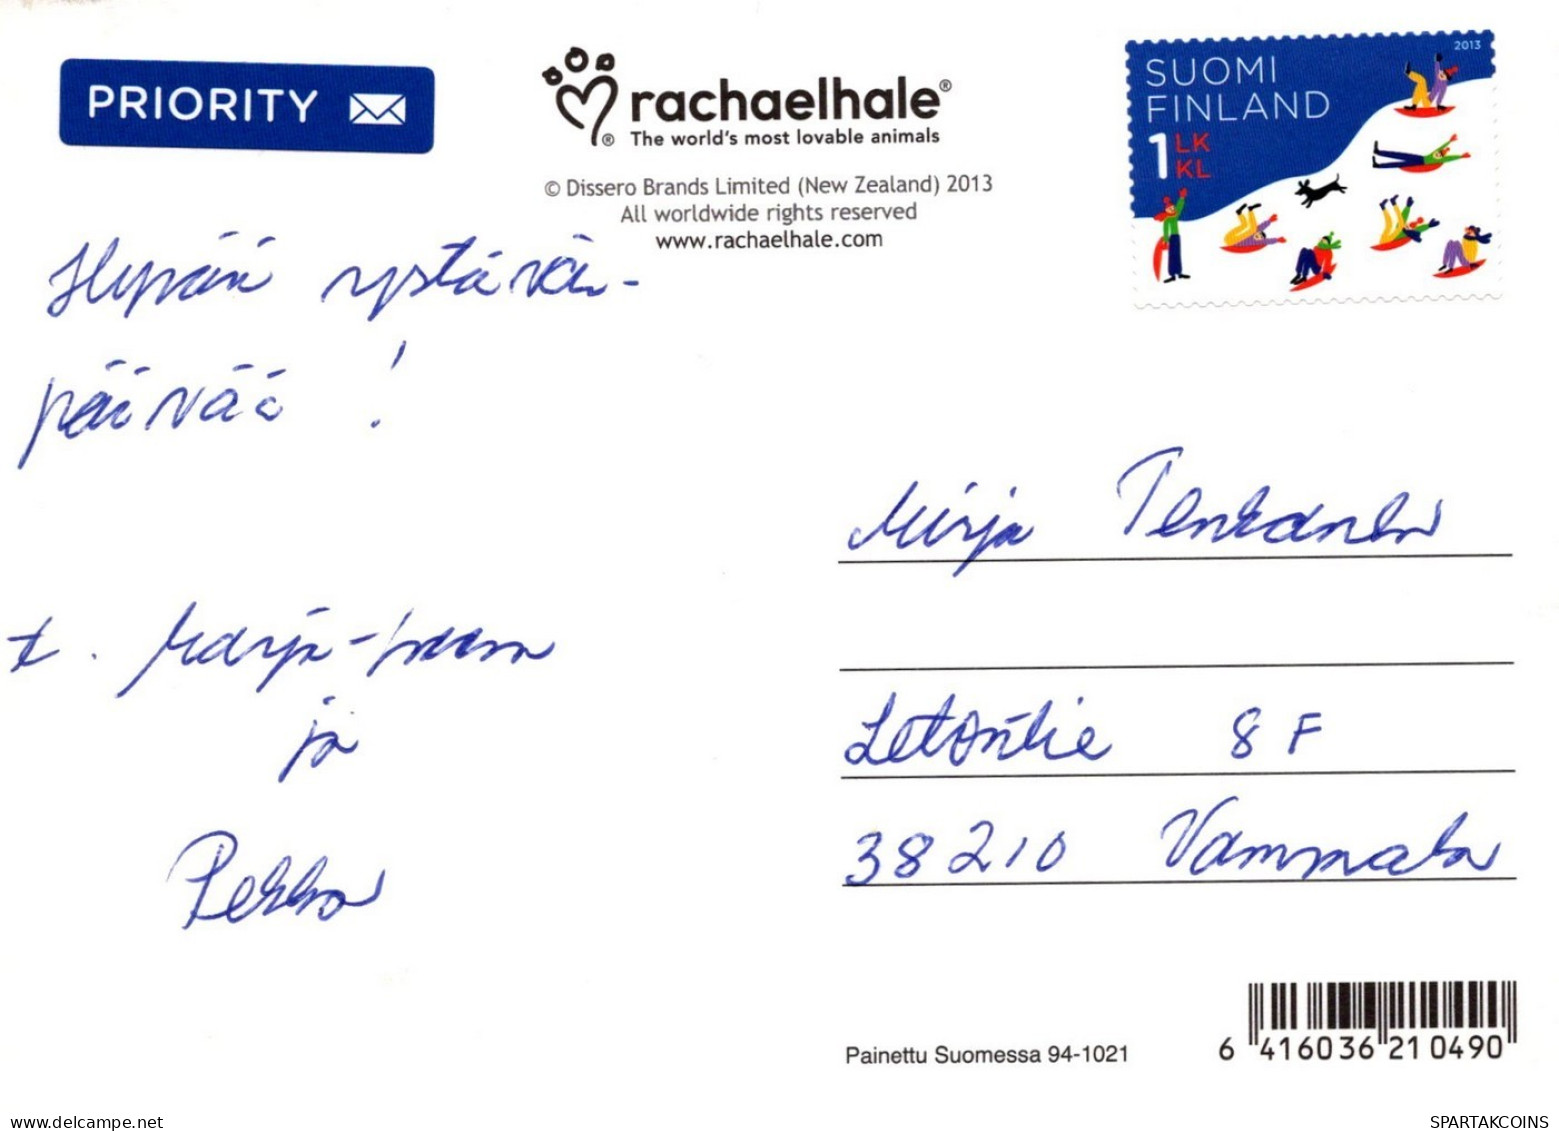 PRIORITY
rachaelhale®
®
The world's most lovable animals
© Dissero Brands Limited (New Zealand) 2013
All worldwide rights reserved
www.rachaelhale.com
2013
SUOMI
FINLAND
1 LK
KL
Hyvää ystävän-
päivää !
Mirja Penkanen
t. Marja-
ja
Pekka
8 F
38210 Vammala
Painettu Suomessa 94-1021
6 416036 210490
SPARTAKCOINS
delcampe.net